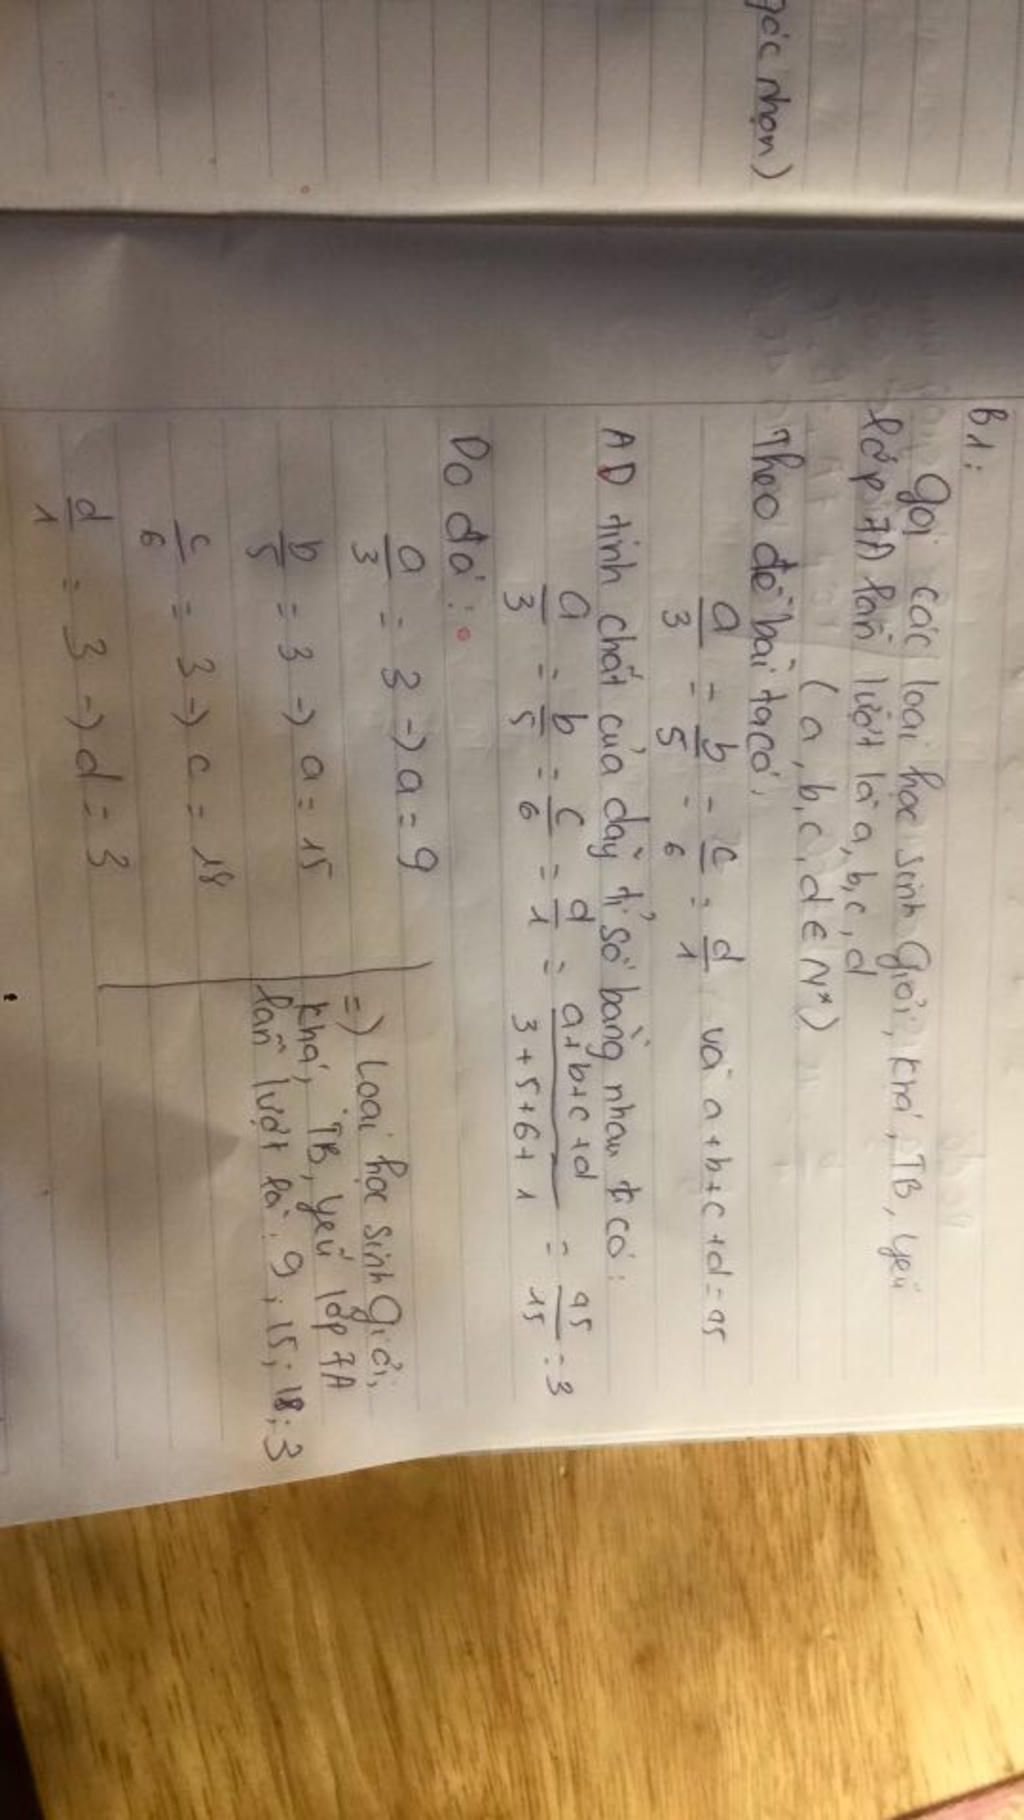 góc nhọn)
B1:
Gọi các loại học sinh Giỏi, Khá, TB, yếu
lớp 7A lần lượt là a, b, c, d
(a, b, c, d ∈ N*)
Theo đề bài ta có,
a/3 = b/5 = c/6 = d/1 và a+b+c+d=45
AD tính chất của dãy tỉ số bằng nhau t có:
a/3 = b/5 = c/6 = d/1 = a+b+c+d/3+5+6+1 = 45/15 = 3
Do đó:
a/3 = 3 -> a = 9
b/5 = 3 -> a = 15
c/6 = 3 -> c = 18
d/1 = 3 -> d = 3
=> Loại học sinh Giỏi,
Khá, TB, yếu lớp 7A
lần lượt là: 9; 15; 18; 3